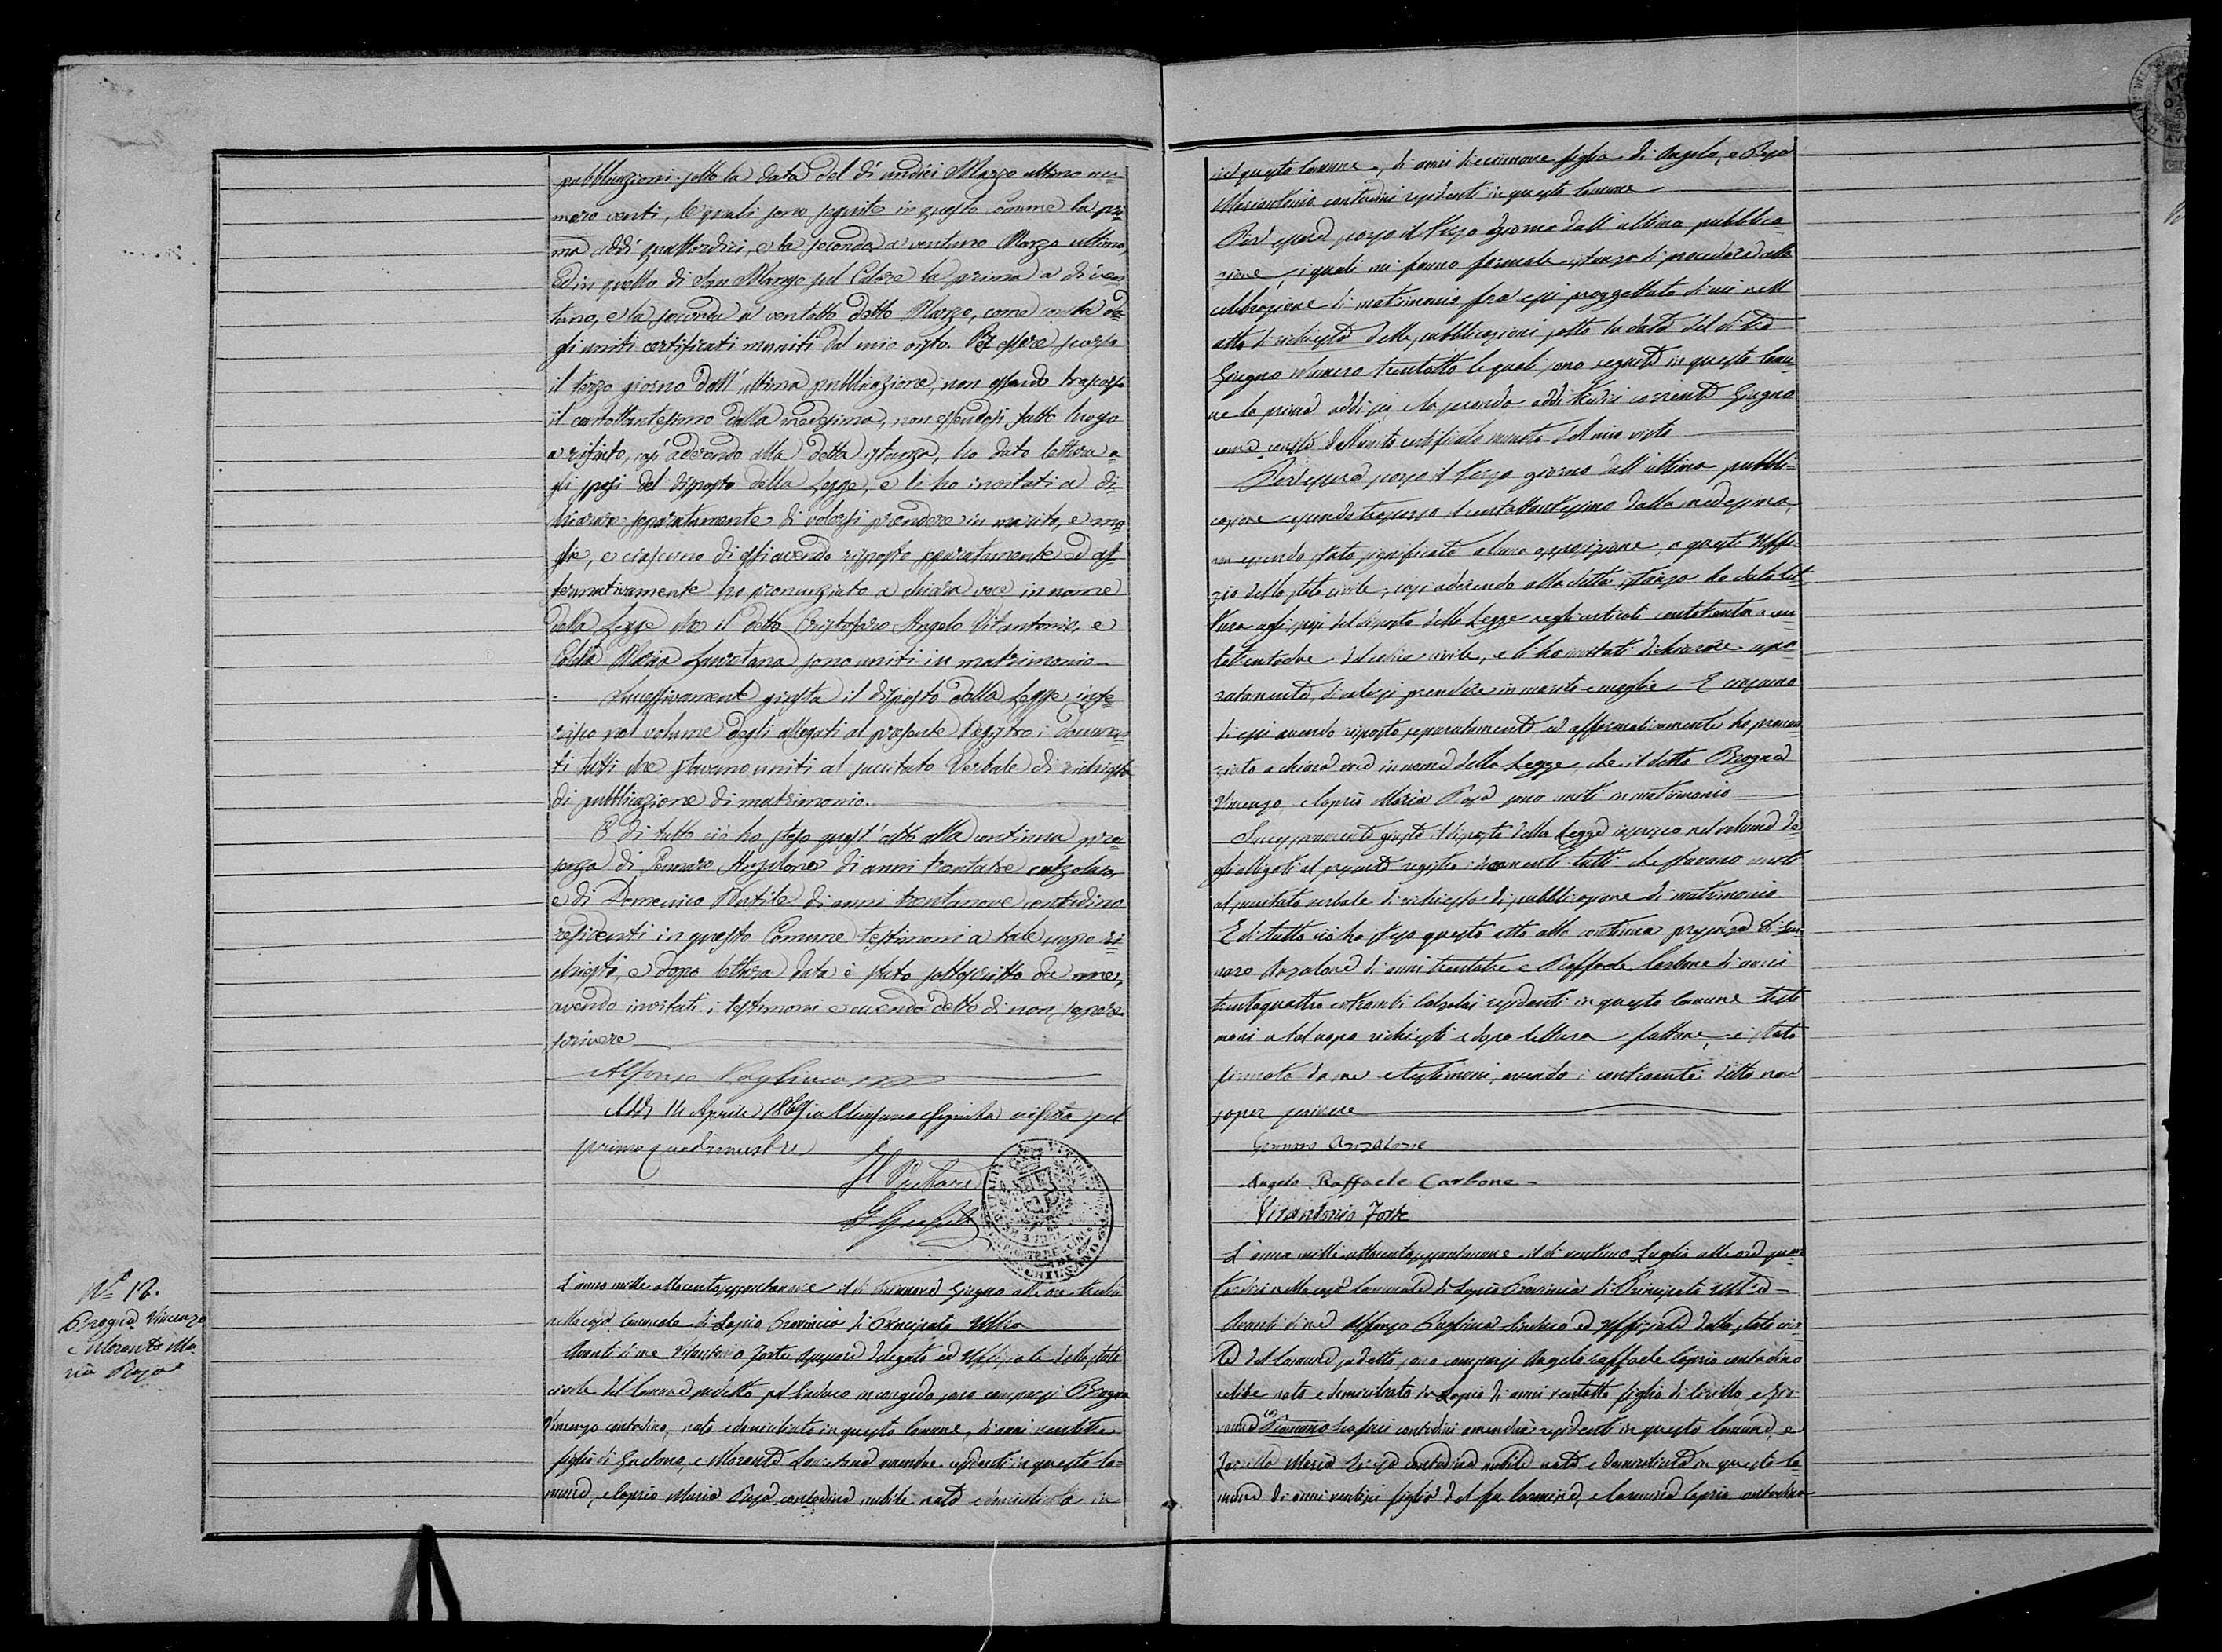 pubblicazioni sotto la data del dì undici Marzo ultimo nu-
mero venti, le quali sono seguite in questo Comune la pri-
ma addì quattordici, e la seconda a ventuno Marzo ultimo,
ed in quello di San Mango sul Calore la prima a dì ven-
tuno, e la seconda a ventotto detto Marzo, come consta da-
gli uniti certificati muniti dal mio visto. Per essere scorso
il terzo giorno dall'ultima pubblicazione, non essendo trascorso
il centottantesimo dalla medesima, non essendosi fatto luogo
a rifiuto, così aderendo alla detta istanza, ho dato lettura a-
gli sposi del disposto della Legge, e li ho invitati a di-
chiarare separatamente di volersi prendere in marito, e mo-
glie, e ciascuno di essi avendo risposto separatamente ed af-
fermativamente ho pronunziato a chiara voce in nome
della Legge che il detto Cristofaro Angelo Vitantonio, e
Colella Maria Lauretana sono uniti in matrimonio
Successivamente giusta il disposto della Legge inse-
risco nel volume degli allegati al presente Registro i documen-
ti tutti che stavano uniti al succitato Verbale di richiesta
di pubblicazione di matrimonio.
E di tutto ciò ho steso quest'atto alla continua pre-
senza di Gennaro Anzalone di anni trentatre calzolaio,
e di Domenico di anni trentanove contadino
residenti in questo Comune testimoni a tale uopo ri-
chiesti, e dopo lettura data è stato sottoscritto da me,
avendo invitati i testimoni e avendo detto di non sapere
scrivere
Alfonso Pagliuca
Addì 14 Aprile 1869 in Chiusano visto pel
primo quadrimestre
Il Pretore
N.° 12.
Brogna Vincenzo
e Morante Ma-
ria Rosa
L'anno mille ottocentosessantanove il dì Giugno alle ore tredici
nella casa Comunale di Lapio Provincia di Principato Ultra
Avanti di me Vitantonio Forte Assessore delegato ed Uffiziale dello stato
civile del Comune suddetto pel Sindaco in congedo, sono comparsi Brogna
Vincenzo contadino, nato e domiciliato in questo Comune, di anni
figlio di Gaetano, e Morante Lauretana amendue residenti in questo Co-
mune, e Caprio Maria Rosa contadina nubile nata e domiciliata in
in questo Comune, di anni diecinnove figlia di Angelo, e Rosa
Mariantonia contadini residenti in questo Comune
Per essere scorso il terzo giorno dall'ultima pubblica-
zione, i quali mi fanno formale istanza di procedere alla
celebrazione di matrimonio fra essi progettato di cui nell'
atto di richiesta delle pubblicazioni sotto la data del dì tre
Giugno Numero trentotto le quali sono seguite in questo Comu-
ne la prima addì sei e la seconda addì tredici corrente Giugno
come consta dall'unito certificato munito del mio visto
Per essere scorso il terzo giorno dall'ultima pubbli-
cazione essendo trascorso il centottantesimo dalla medesima,
non essendo stato significato alcuna opposizione, a questo Uffi-
zio dello stato civile, così aderendo alla detta istanza ho dato let-
tura agli sposi del disposto della Legge negli articoli centotrenta e cen-
totrentadue del codice civile, e li ho invitati dichiarare sepa-
ratamente, di volersi prendere in marito e moglie. E ciascuno
di essi avendo risposto separatamente ed affermativamente ho pronun-
ziato a chiara voce in nome della Legge, che il detto Brogna
Vincenzo e Caprio Maria Rosa sono uniti in matrimonio
Successivamente giusta il disposto della Legge inserisco nel volume de-
gli allegati al presente registro i documenti tutti che stavano uniti
al succitato verbale di richiesta di pubblicazione di matrimonio
E di tutto ciò ho steso questo atto alla continua presenza di Gen-
naro Anzalone di anni trentatre e Raffaele Carbone di anni
trentaquattro entrambi Calzolai residenti in questo Comune testi-
moni a tal uopo richiesti e dopo lettura fattone, è stato
firmato da me e testimoni, avendo i contraenti detto non
saper scrivere
Gennaro Anzalone
Angelo Raffaele Carbone
Vitantonio Forte
L'anno mille ottocentosessantanove il dì ventuno Luglio alle ore quat-
tordici nella casa Comunale di Lapio Provincia di Principato Ultra
Avanti di me Alfonso Pagliuca Sindaco ed Uffiziale dello stato civi-
le del Comune suddetto, sono comparsi Angelo Raffaele Caprio contadino
celibe nato e domiciliato in Lapio di anni ventotto figlio di Cirillo, e Gio-
vanna contadini amendue residenti in questo Comune, e
Maria Teresa contadina nubile nata e domiciliata in questo Co-
mune di anni ventisei figlia del fu Carmine, e Carmina Caprio contadina